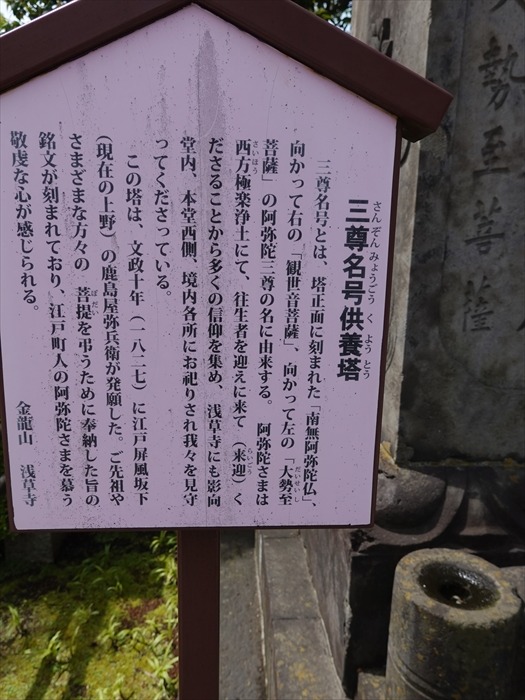 さんぞんみょうごうくようとう
三尊名号供養塔
三尊名号とは、塔正面に刻まれた「南無阿弥陀仏」、
向かって右の「観世音菩薩」、向かって左の「大勢至
だいせいし
菩薩」の阿弥陀三尊の名に由来する。阿弥陀さまは
西方極楽浄土にて、往生者を迎えに来て(来迎)く
さいほう
らいごう
ださることから多くの信仰を集め、浅草寺にも影向
堂内、本堂西側、境内各所にお祀りされ我々を見守
ってくださっている。
この塔は、文政十年(一八二七)に江戸屏風坂下
(現在の上野)の鹿島屋弥兵衛が発願した。ご先祖や
さまざまな方々の 菩提を弔うために奉納した旨の
ぼだい
銘文が刻まれており、江戸町人の阿弥陀さまを慕う
敬虔な心が感じられる。
金龍山 浅草寺
勢至菩薩